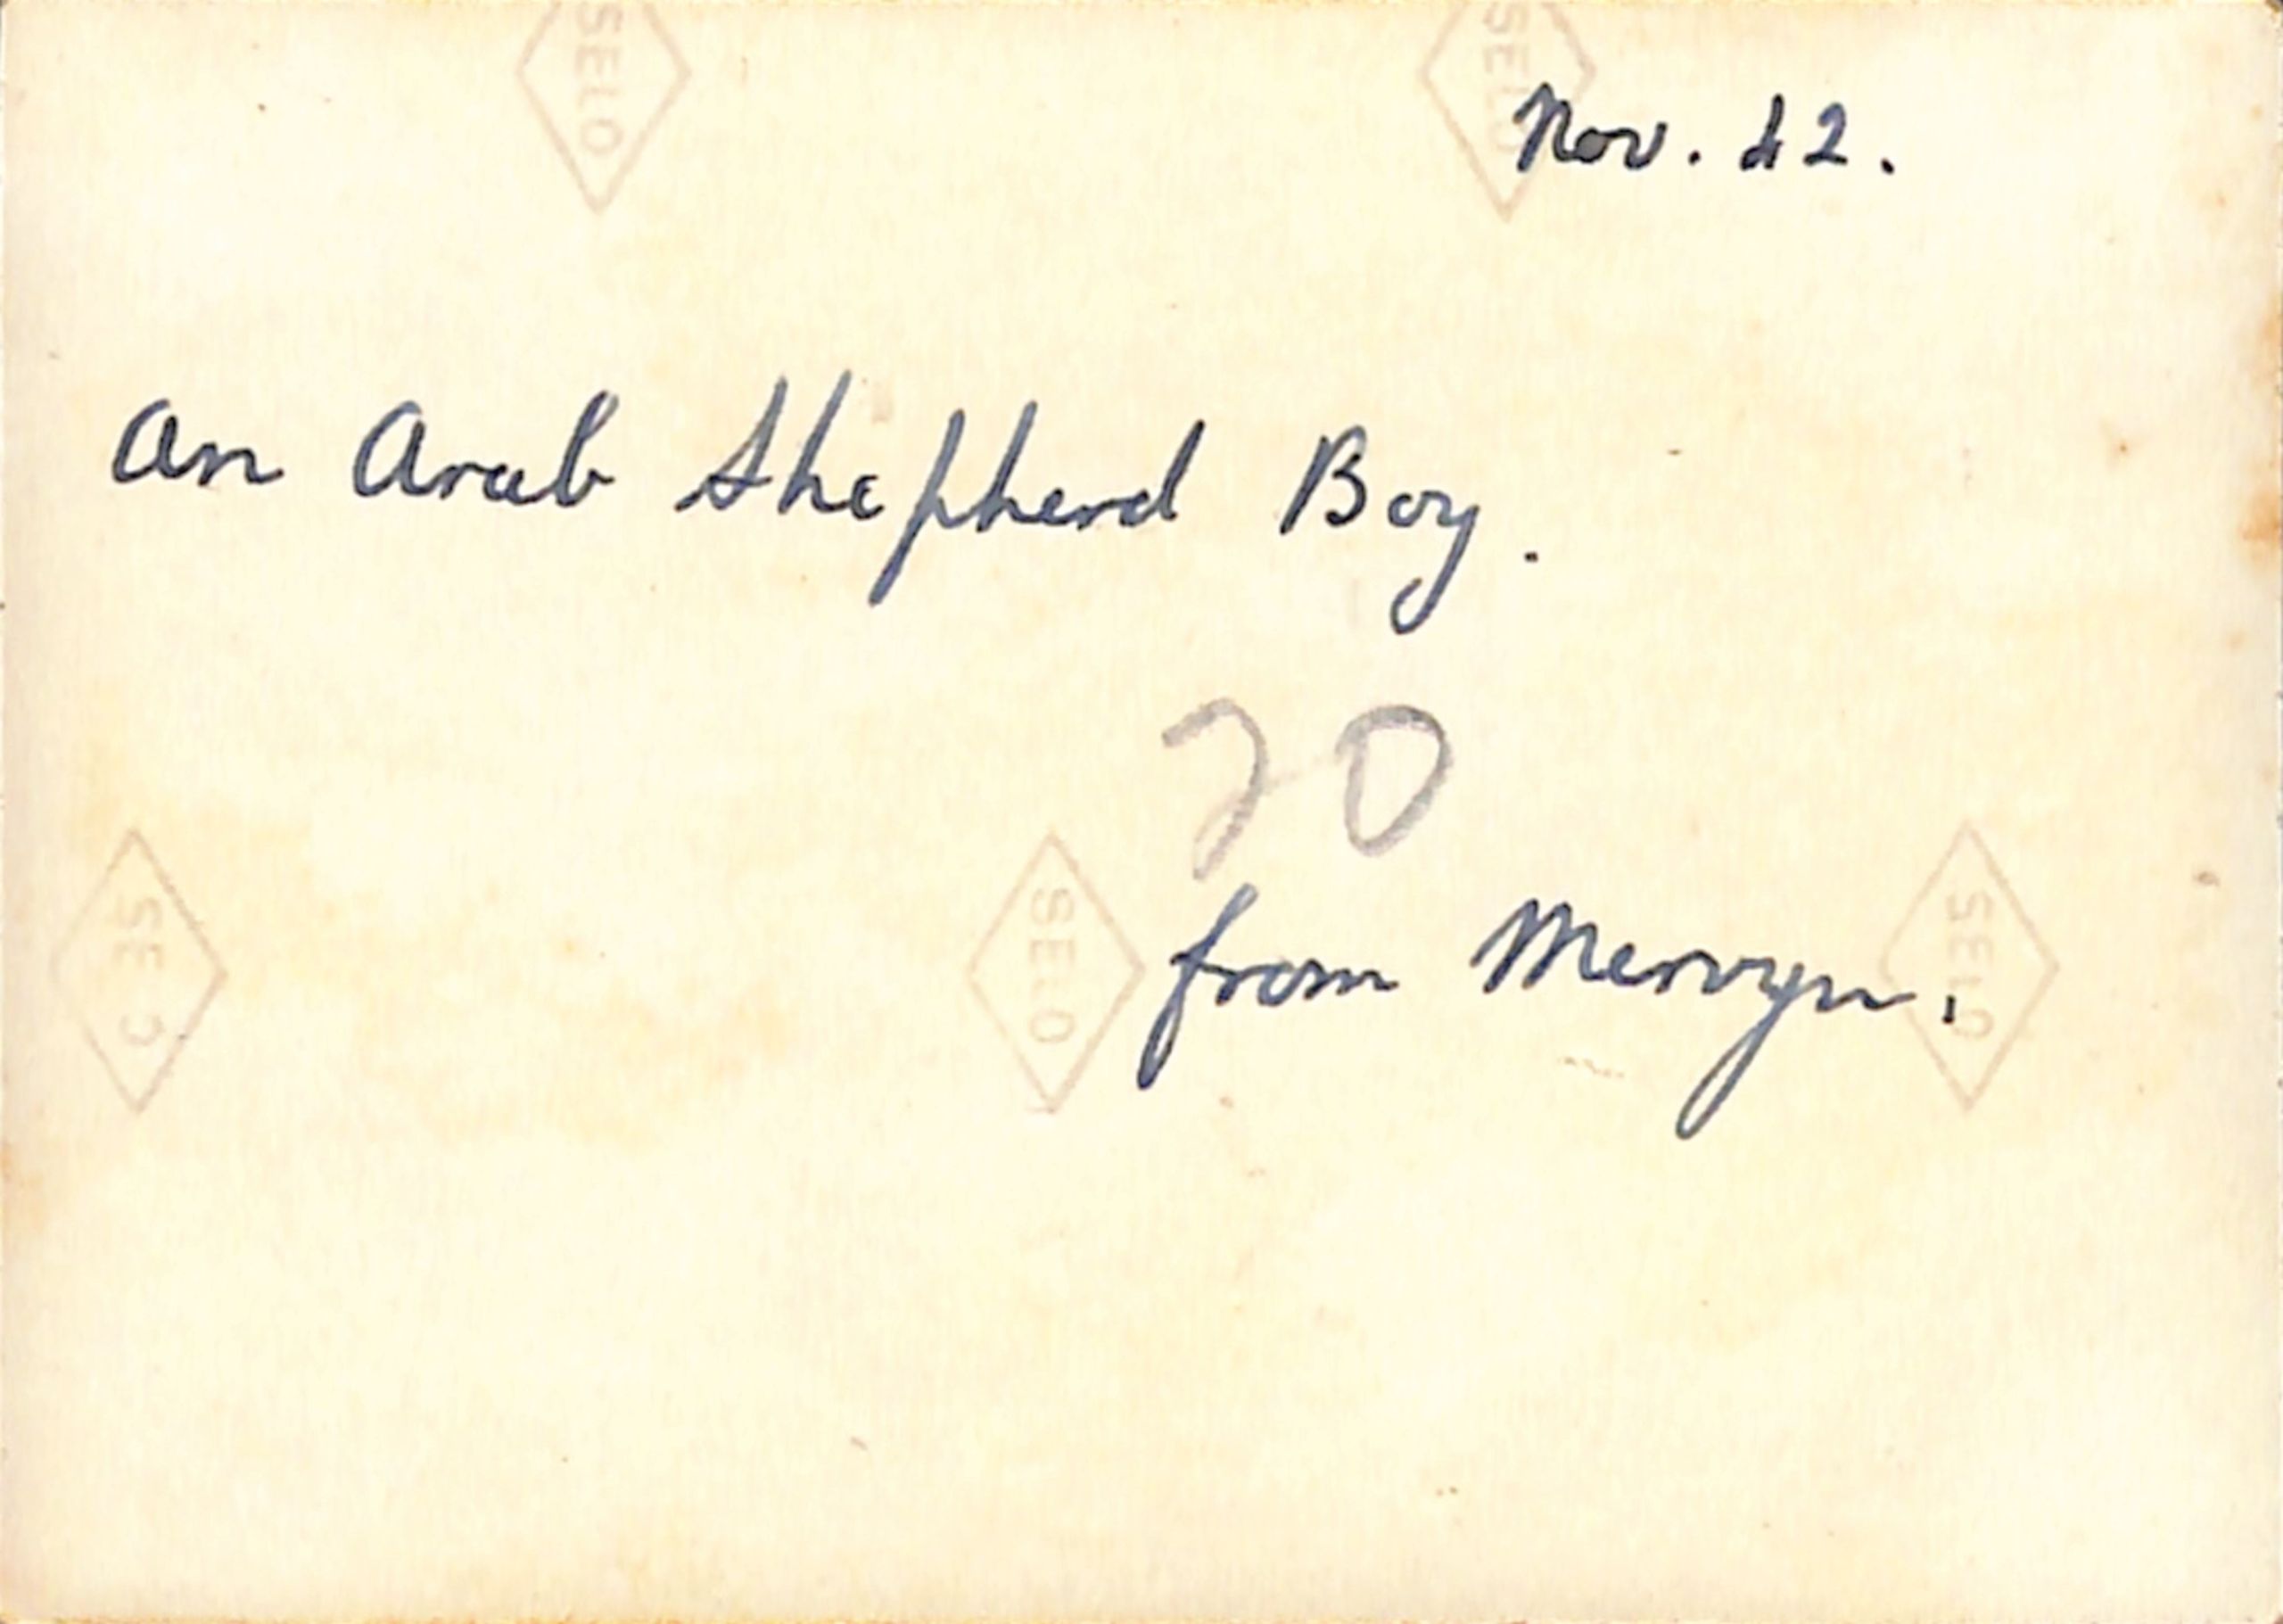 SELO SELO
Nov. 42.
An Arab Shepherd Boy.
20
SELO SELO SELO
from Mervyn.